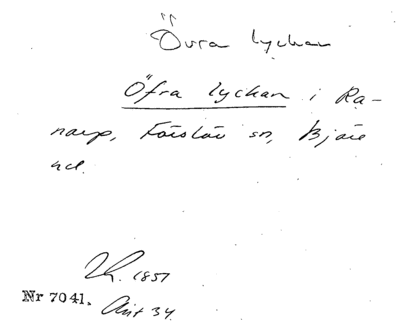 Övra lyckan
Öfra lyckan i Ra-
narp, Förslöv sn, Bjäre
hd.
1851
Nr 7041. Avt 34.